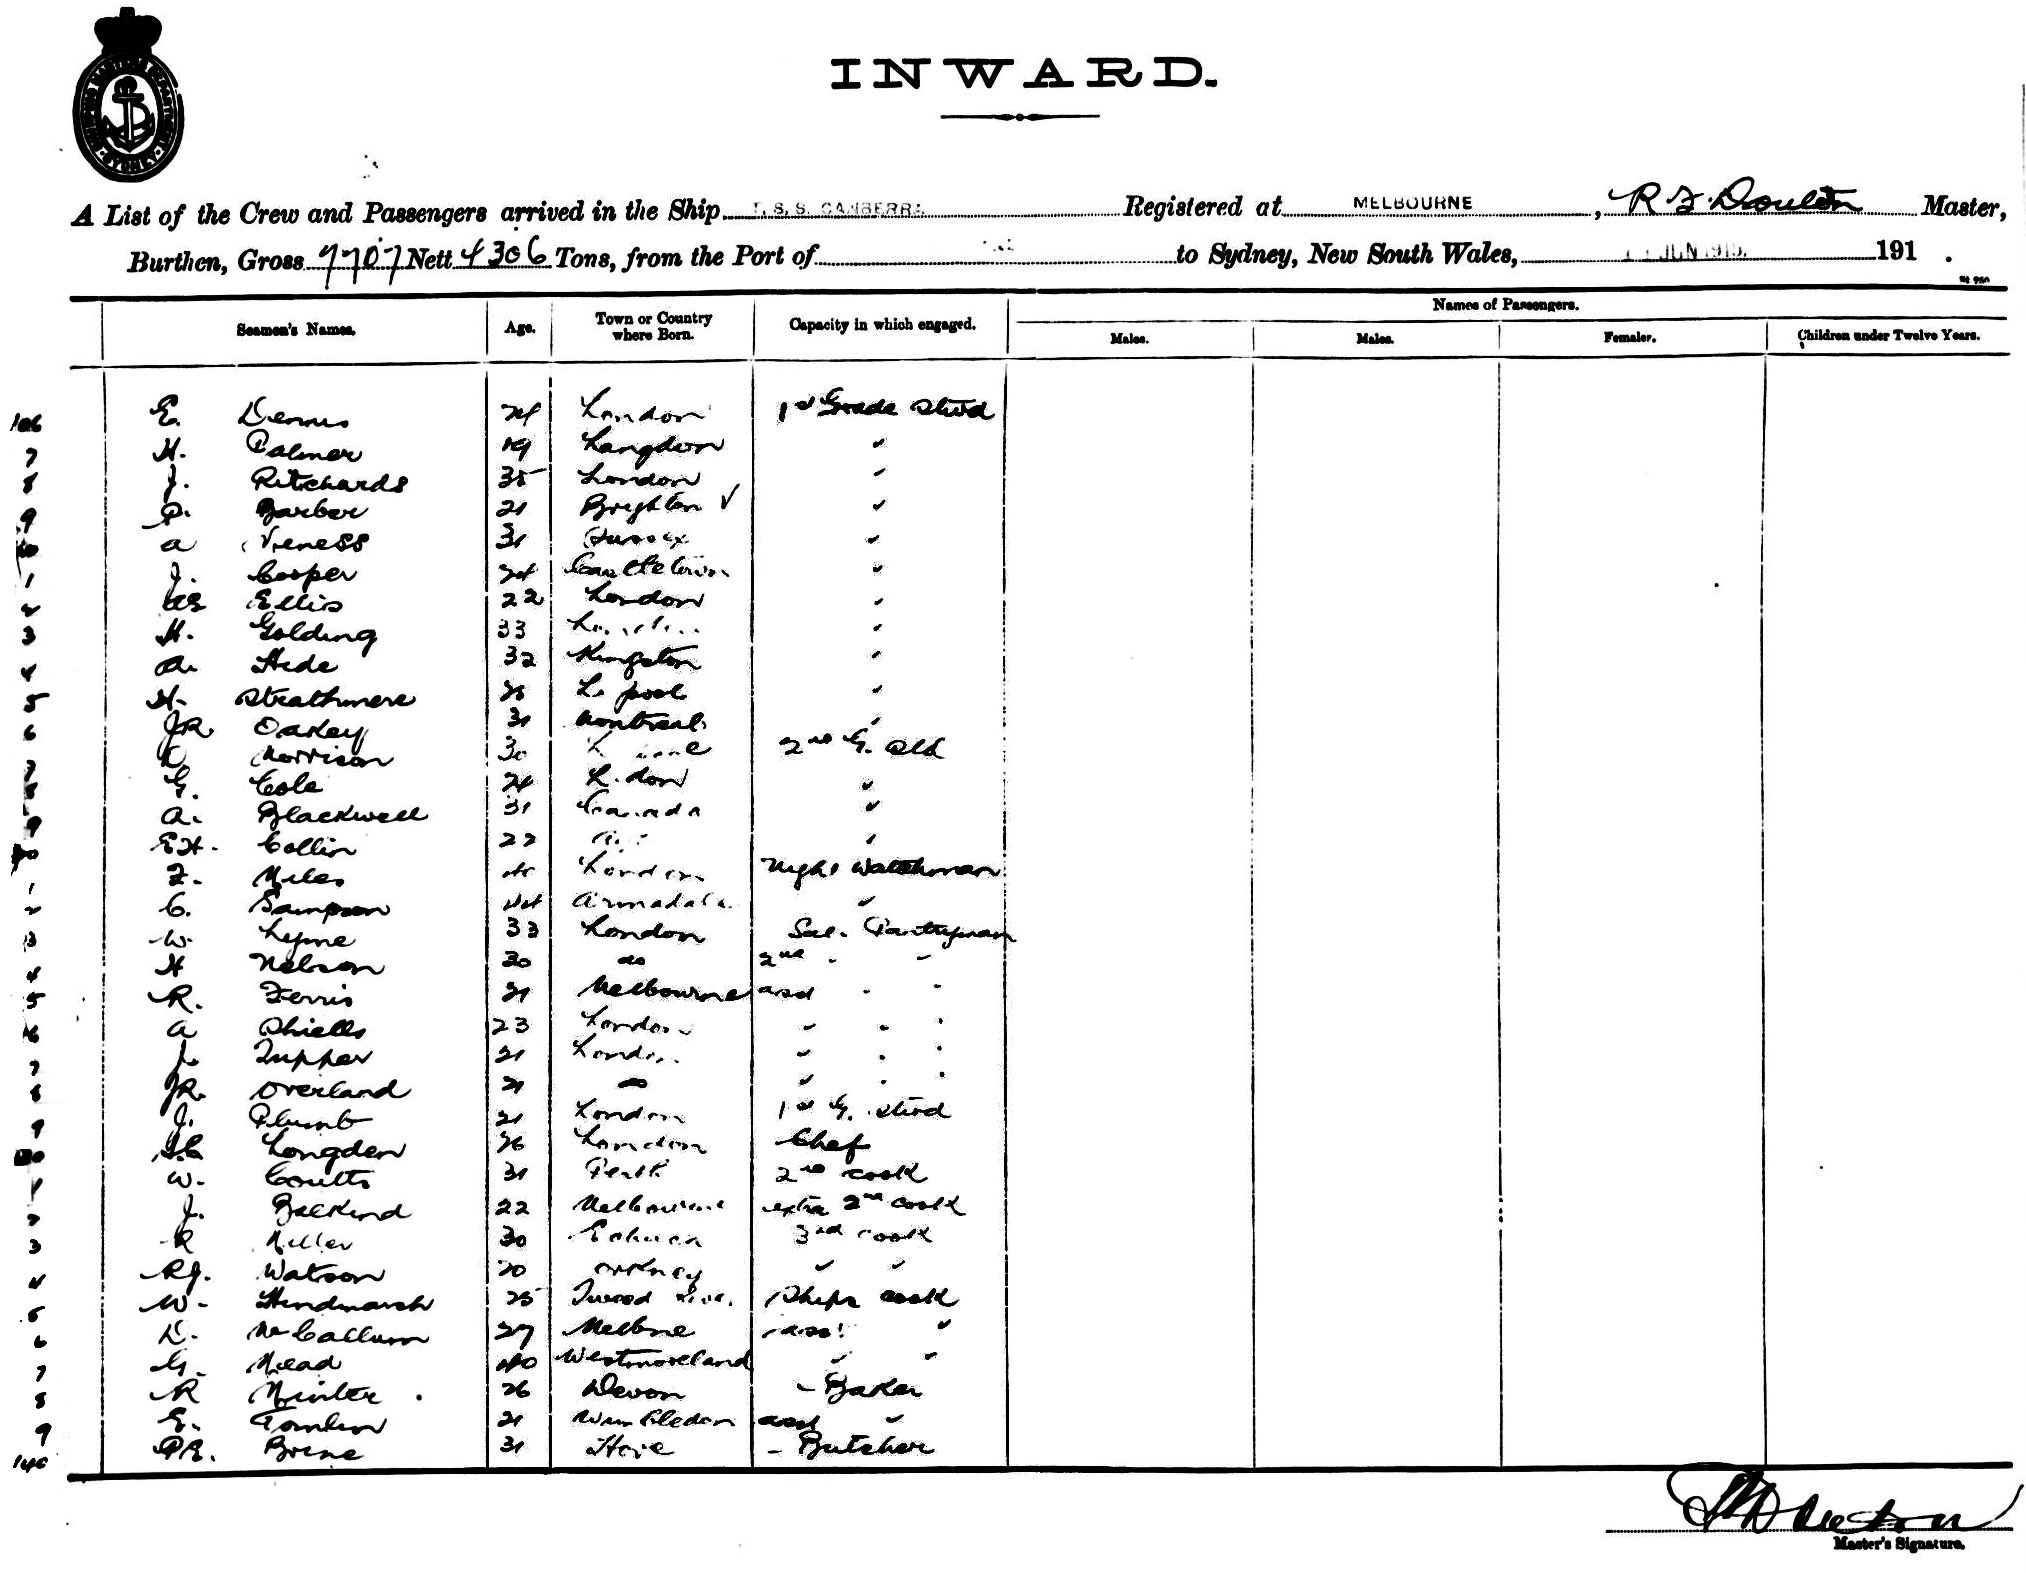 INWARD.
SYDNEY
A List of the Crew and Passengers arrived in the Ship T.S.S. CANBERRA Registered at MELBOURNE, R. Z. Doulton Master,
Burthen, Gross 7707 Nett 4306 Tons, from the Port of to Sydney, New South Wales, JUN 1915. 191 .
Names of Passengers.
Seamen's Names. Age. Town or Country where Born. Capacity in which engaged. Males. Males. Females. Children under Twelve Years.
106 E. Dennis 24 London 1st Grade Stwd
7 H. Palmer 19 Langdon "
8 J. Ritchards 35 London "
9 P. Barber 21 Brighton "
10 A Veness 31 Sussex "
1 J. Cooper 24 Castletown "
2 AE Ellis 22 London "
3 H. Golding 33 "
4 A. Hide 32 Kingston "
5 H. Strathmere L. pool "
6 JR Oakey 31 Montreal "
7 Morrison 30 2nd G. Std
8 G. Cole 24 L.don "
9 A. Blackwell 31 Canada "
20 EH. Collin 22 "
1 F. Miles London Night Watchman
2 C. Sampson 44 Armadale "
3 W. Lyne 33 London Sal. Pantryman
4 H Nelson 30 do 2nd " "
5 R. Ferris 21 Melbourne asst " "
6 A Shiells 23 London " " "
7 J. Tupper 21 London " " "
8 JR. Overland 21 do " " "
9 J. Plumb 21 London 1st G. Stwd
30 Longden 26 London Chef
1 W. Coutts 31 Perth 2nd cook
2 J. Balkind 22 Melbourne extra 2nd cook
3 R Miller 30 Echuca 3rd cook
4 RJ. Watson 20 Orkney " "
5 W. Hindmarsh 25 Ships cook
6 D. McCallum 27 Melbne asst "
7 G. Mead 40 Westmoreland " "
8 R Minter 26 Devon - Baker
9 E. Tomlin 21 Wimbledon asst "
140 PE. Brine 31 Hove - Butcher
Master's Signature.